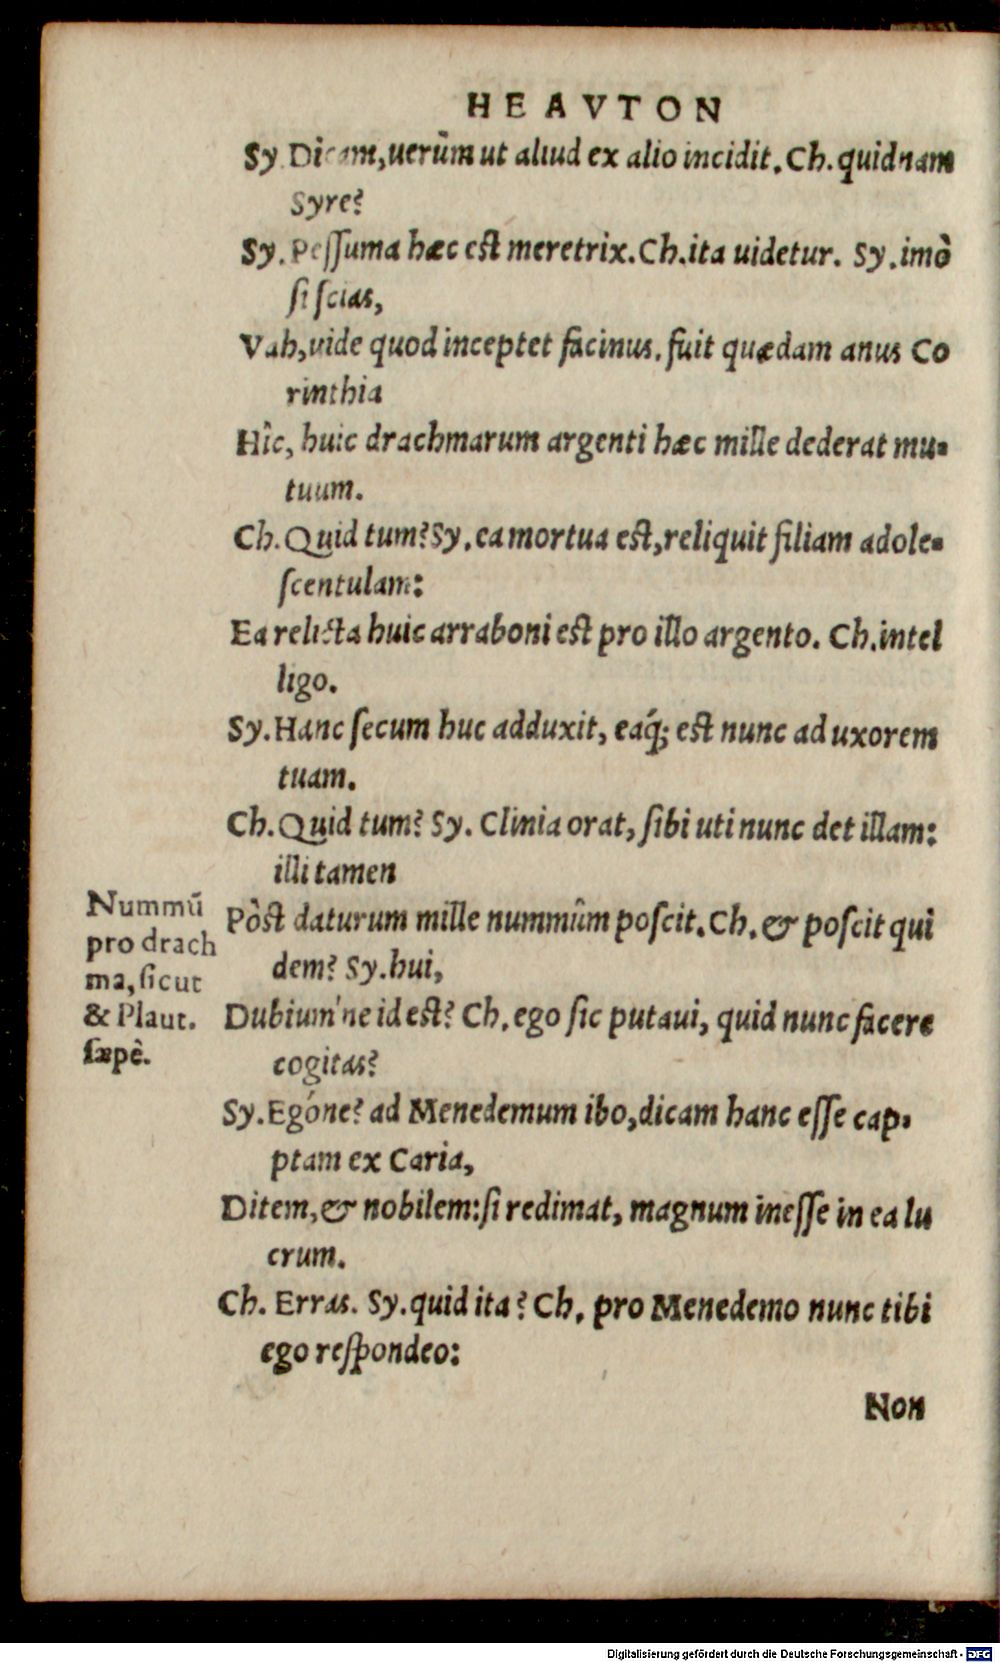 HEAVTON
Sy. Dicam, uerùm ut aliud ex alio incidit. Ch. quidnam
Syre?
Sy. Peſſuma hæc eſt meretrix. Ch. ita uidetur. Sy. imò
ſi ſcias,
Vah, uide quod inceptet facinus. fuit quædam anus Co
rinthia
Hîc, huic drachmarum argenti hæc mille dederat mu-
tuum.
Ch. Quid tum? Sy. ea mortua eſt, reliquit filiam adole-
ſcentulam:
Ea relicta huic arraboni eſt pro illo argento. Ch. intel
ligo.
Sy. Hanc ſecum huc adduxit, eaq́; eſt nunc ad uxorem
tuam.
Ch. Quid tum? Sy. Clinia orat, ſibi uti nunc det illam:
illi tamen
Pòſt daturum mille nummûm poſcit. Ch. & poſcit qui
dem? Sy. hui,
Dubium'ne id eſt? Ch. ego ſic putaui, quid nunc facere
cogitas?
Sy. Egóne? ad Menedemum ibo, dicam hanc eſſe cap-
ptam ex Caria,
Ditem, & nobilem: ſi redimat, magnum ineſſe in ea lu
crum.
Ch. Erras. Sy. quid ita? Ch. pro Menedemo nunc tibi
ego reſpondeo:
Non
Nummū
pro drach
ma, ſicut
& Plaut.
ſæpè.
Digitalisierung gefördert durch die Deutsche Forschungsgemeinschaft - DFG